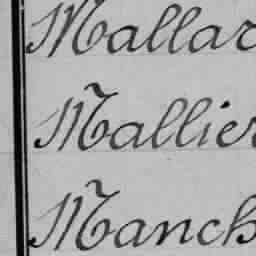 Mallar
Mallier
Manch